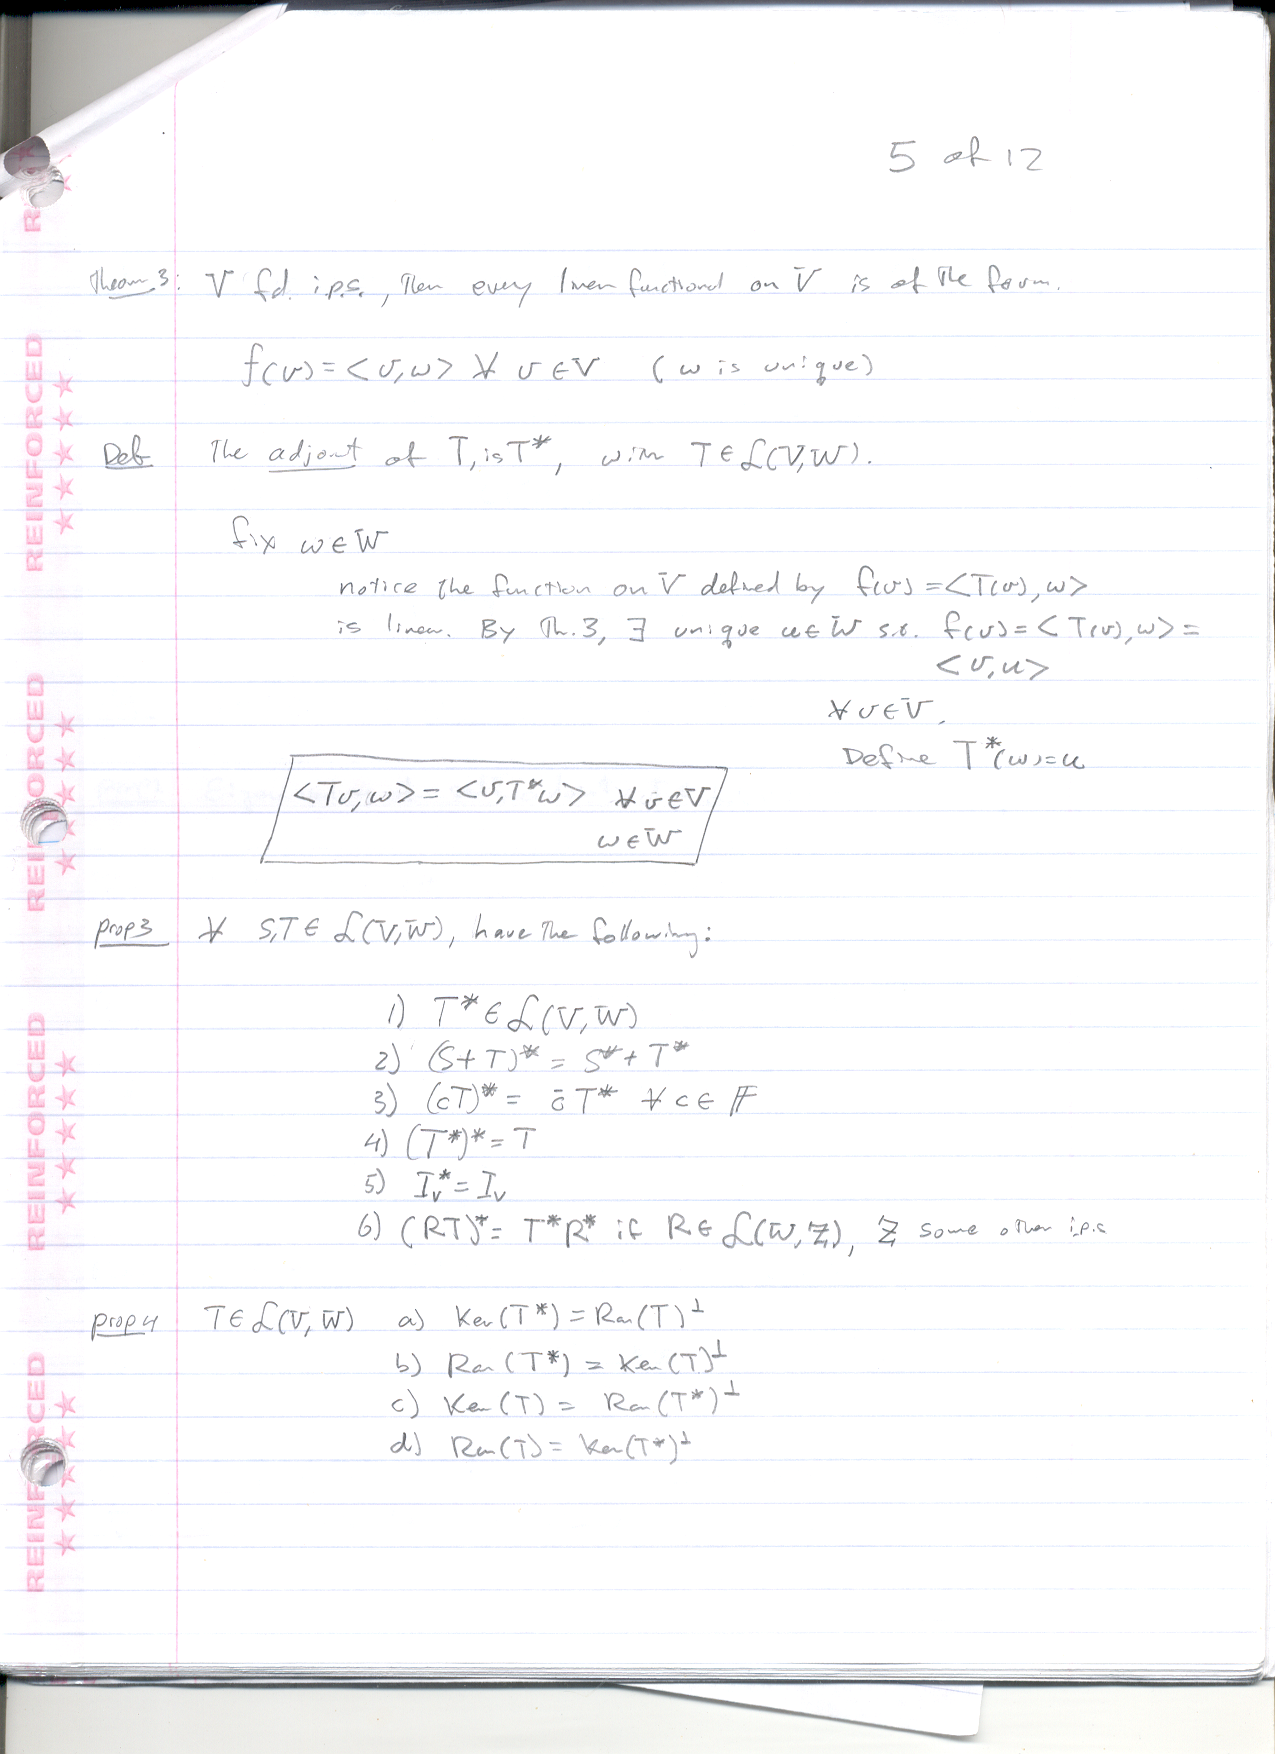 5 of 12
Theorem 3: V f.d. i.p.s., Then every linear functional on V is of the form.
f(v) = <v,w> ∀ v ∈ V (w is unique)
Def The adjoint of T, is T*, with T ∈ ℒ(V,W).
fix w ∈ W
notice the function on V defined by f(v) = <T(v), w>
is linear. By Th. 3, ∃ unique u ∈ W s.t. f(v) = <T(v), w> =
<v, u>
∀ v ∈ V.
Define T*(w) = u
<Tv, w> = <v, T*w> ∀ v ∈ V
w ∈ W
prop 3 ∀ S,T ∈ ℒ(V,W), have the following:
1) T* ∈ ℒ(V, W)
2) (S+T)* = S* + T*
3) (cT)* = c̄ T* ∀ c ∈ 𝔽
4) (T*)* = T
5) I_v* = I_v
6) (RT)* = T*R* if R ∈ ℒ(W,Z), Z some other i.p.s
prop 4 T ∈ ℒ(V, W) a) Ker(T*) = Ran(T)⊥
b) Ran(T*) = Ker(T)⊥
c) Ker(T) = Ran(T*)⊥
d) Ran(T) = Ker(T*)⊥
REINFORCED
REINFORCED
REINFORCED
REINFORCED